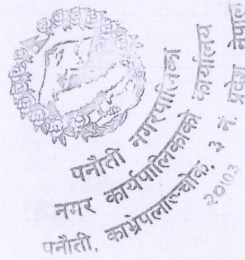 पनौती नगरपालिका
नगर कार्यपालिकाको कार्यालय
पनौती, काभ्रेपलाञ्चोक, ३ नं. प्रदेश नेपाल
२०७३